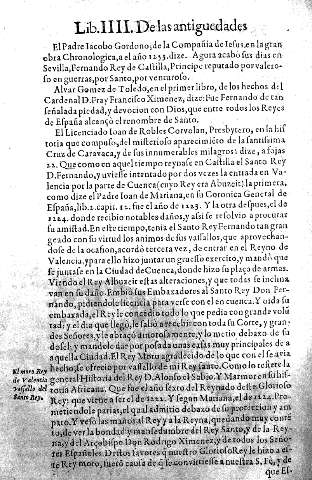 Lib. IIII. De las antiguedades
El Padre Iacobo Gordono, de la Compañia de Iesus, en la gran
obra Chronologica, a el año 1253. dize. Agora acabó sus dias en
Sevilla, Fernando Rey de Castilla, Principe reputado por valero-
so en guerras, por Santo, por venturoso.
Alvar Gomez de Toledo, en el primer libro, de los hechos del
Cardenal D. Fray Francisco Ximenez, dize: fue Fernando de tan
señalada piedad, y devocion con Dios, que entre todos los Reyes
de España alcançó el renombre de Santo.
El Licenciado Ioan de Robles Corvolan, Presbytero, en la his
toria que compuso, del misterioso aparecimiẽto de la santissima
Cruz de Caravaca, y de sus innumerables milagros: dize, a fojas
22. Que como en aquel tiempo reynase en Castilla el Santo Rey
D. Fernando, y uviese intentado por dos vezes la entrada en Va-
lencia por la parte de Cuenca (cuyo Rey era Abuzeit) la primera,
como dize el Padre Ioan de Mariana, en su Coronica General de
España, lib. 2. capit. 12. fue el año de 1223. Y la otra despues, el de
1224. donde recibio notables daños, y asi se resolvio a procurar
su amistad. En este tiempo, tenia el Santo Rey Fernando tan gran
geado con su virtud los animos de sus vasallos, que aprovechan-
dose de la ocasion, acordó tercera vez, de entrar en el Reyno de
Valencia, y para ello hizo juntar un gruesso exercito, y mandò que
se juntase en la Ciudad de Cuenca, donde hizo su plaça de armas.
Viendo el Rey Albuzeit estas alteraciones, y que todas se inclina
van en su daño. Embiò sus Embaxadores al Santo Rey Don Fer-
nando, pidiendole licencia para verse con el en cuenca. Y oida su
embaxada, el Rey le concedio todo lo que pedia con grande volũ
tad; y el dia que llegò, le salio a recebir con toda su Corte, y gran-
des Señores, y le abraçò amorosamente, y lo metio debaxo de su
dosel; y mandole dar posada en casas muy principales de a
quella Ciudad. El Rey Moro agradecido de lo que con el se avia
hecho, se ofrecio por vasallo de mi Rey santo. Como lo refiere la
general Historia del Rey D. Alonso el Sabio. Y Marmor en su his
toria Africana. Que fue el año sexto del Reynado deste Glorioso
Rey: que viene a ser el de 1222. Y segun Mariana, el de 1224. Pro-
metiendole parias, el qual admitio debaxo de su proteccion y am
paro. Y vesò las manos al Rey y a la Reyna, quedando muy conté
to, de ver la bondad y mansedumbre del Rey Santo, y de la Rey-
na, y del Arçobispo Don Rodrigo Ximenez, y de todos los Seño-
res Españoles. Destos favores q̃ nuestro Glorioso Rey le hizo a es-
te Rey moro, fueró causa de q̃ se convirtiesse a nuestra S. Fè, y de
que Es-
El moro Rey
de Valencia
vasallo del
Santo Rey.